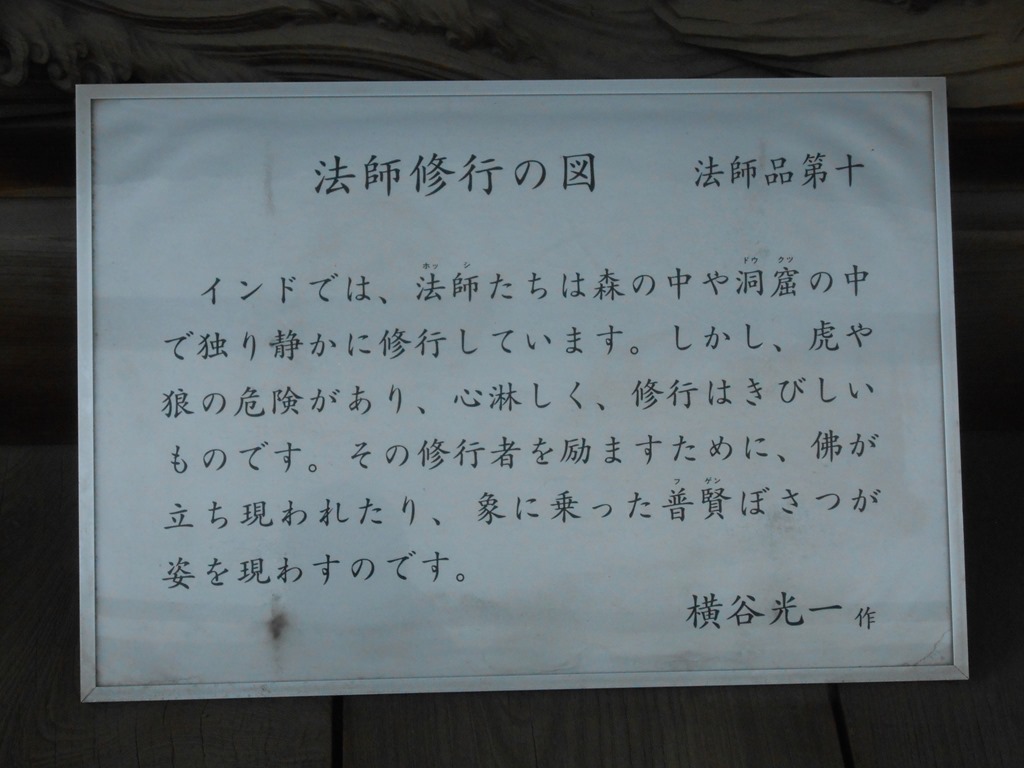 法師修行の図 法師品第十
インドでは、法師たちは森の中や洞窟の中
で独り静かに修行しています。しかし、虎や
狼の危険があり、心淋しく、修行はきびしい
ものです。その修行者を励ますために、佛が
立ち現われたり、象に乗った普賢ぼさつが
姿を現わすのです。
横谷光一作